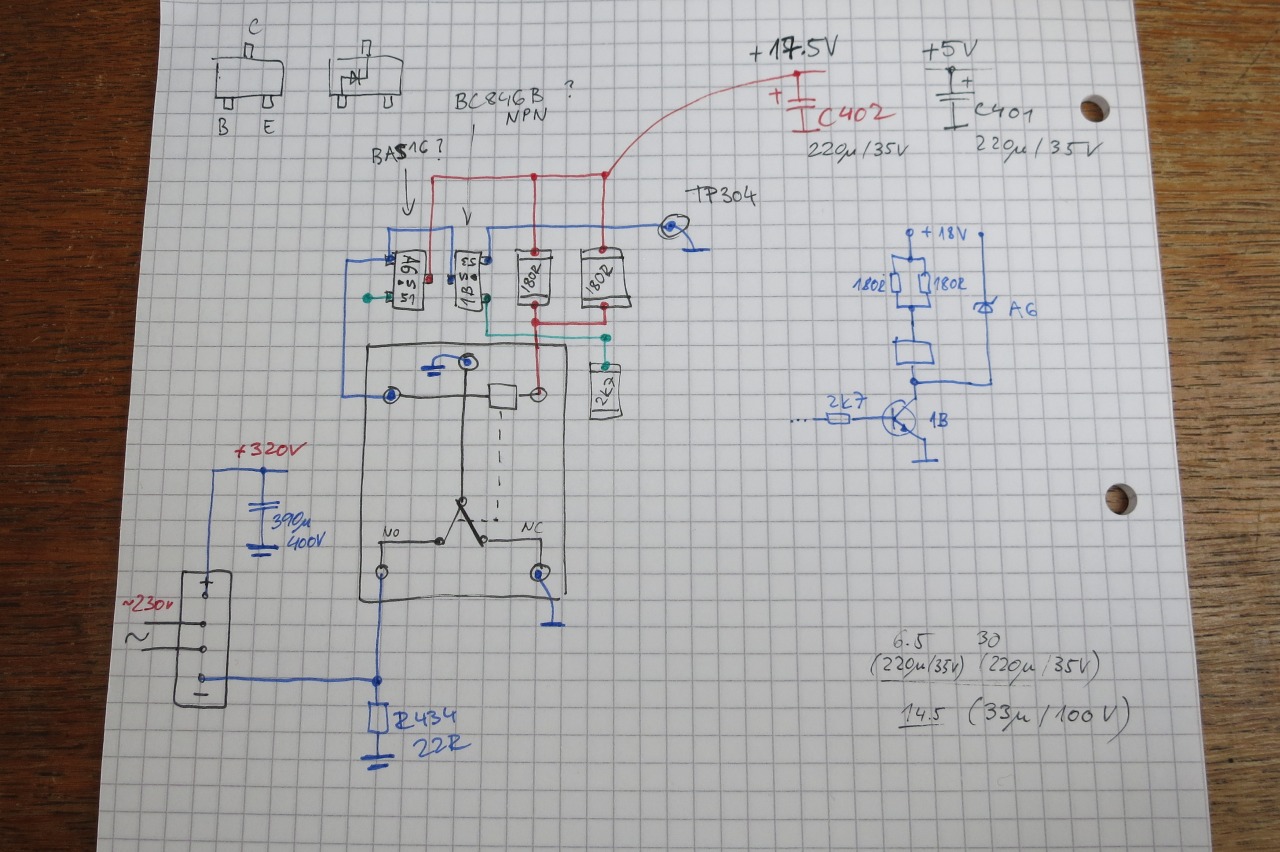 C
B E
BAS16?
BC846B ?
NPN
+17.5V
+
C402
220µ/35V
+5V
+
C401
220µ/35V
TP304
A6
1B
180R
180R
2k2
+18V
180R
180R
A6
2k7
1B
...
+320V
390µ
400V
NO
NC
+
~230V
~
−
R434
22R
6.5 30
(220µ/35V) (220µ/35V)
14.5 (33µ/100V)